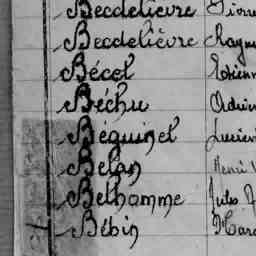 Becdelièvre Pierre
Becdelièvre Raym
Bécel Etienn
Béchu Adrien
Béguinel Lucien
Belan Henri
Belhomme Jules
Bébin Marc